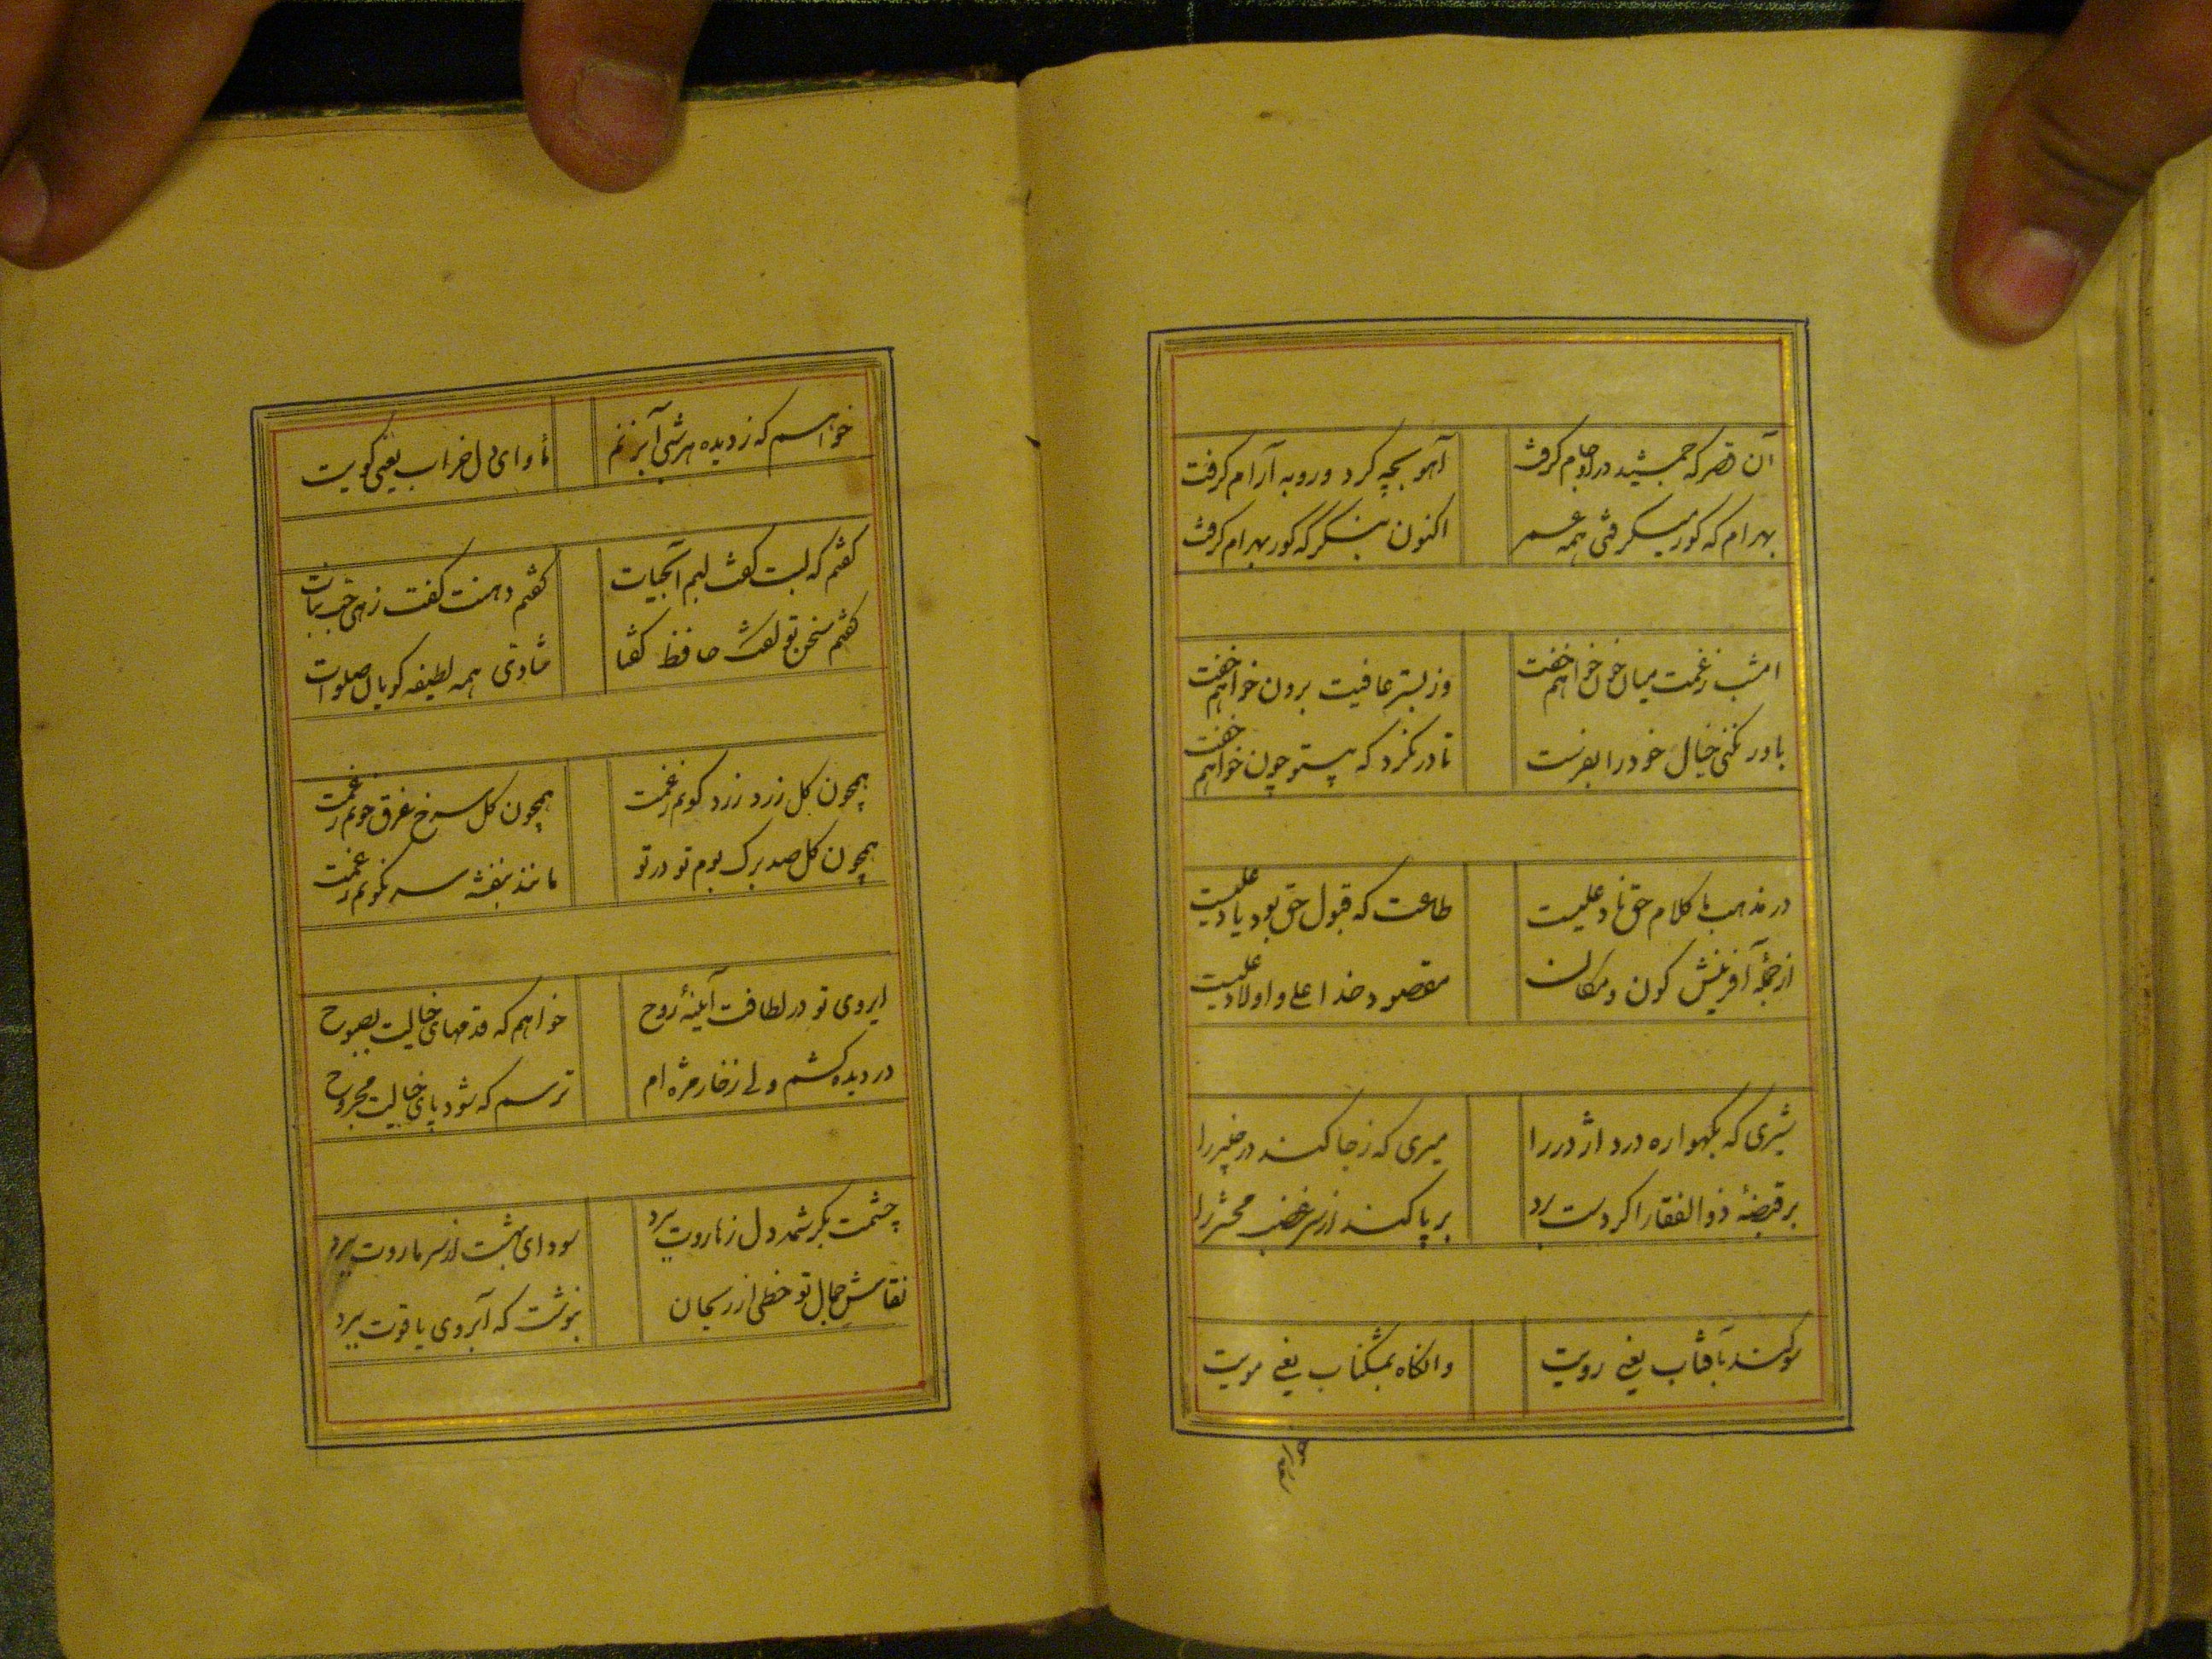 آن قصر که جمشید درو جام کرفت
آهو بچه کرد و روبه آرام کرفت
بهرام که کور میکرفتی همه عمر
اکنون بنکر که کور بهرام کرفت
امشب زغمت میان خون خواهم خفت
وز بستر عافیت برون خواهم خفت
باور نکنی خیال خود را بفرست
تا در نکرد که بیتو چون خواهم خفت
در مذهب ما کلام حق ناد علیست
طاعت که قبول حق بود یاد علیست
از جملهٔ آفرینش کون و مکان
مقصود خدا علی و اولاد علیست
شیری که بکهواره درد اژدر را
میری که ز جا کند در خیبر را
بر قبضهٔ ذوالفقار اکر دست برد
بر پا کند از سر غضب محشر را
سوکند بآفتاب یعنی رویت
وانکاه بمشکناب یعنی مویت
خواهم
خواهم که ز دیده هر شبی آب زنم
مأوای دل خراب یعنی کویت
کفتم که لبت کفت لبم آبحیات
کفتم دهنت کفت زهی حب نبات
کفتم سخن تو کفت حافظ کفتا
شادی همه لطیفه کویان صلوات
همچون کل زرد زرد کونم زغمت
همچون کل سرخ غرق خونم زغمت
همچون کل صد برک بوم تو در تو
مانند بنفشه سر نکونم زغمت
ابروی تو در لطافت آیینهٔ روح
خواهم که قدمهای خیالت بصبوح
در دیده کشم ولی ز خار مژه ام
ترسم که شود پای خیالت مجروح
چشمت بکرشمه دل ز هاروت ببرد
سودای بهشت از سر ماروت ببرد
نقاش جمال تو خطی از ریحان
بنوشت که آبروی یاقوت ببرد